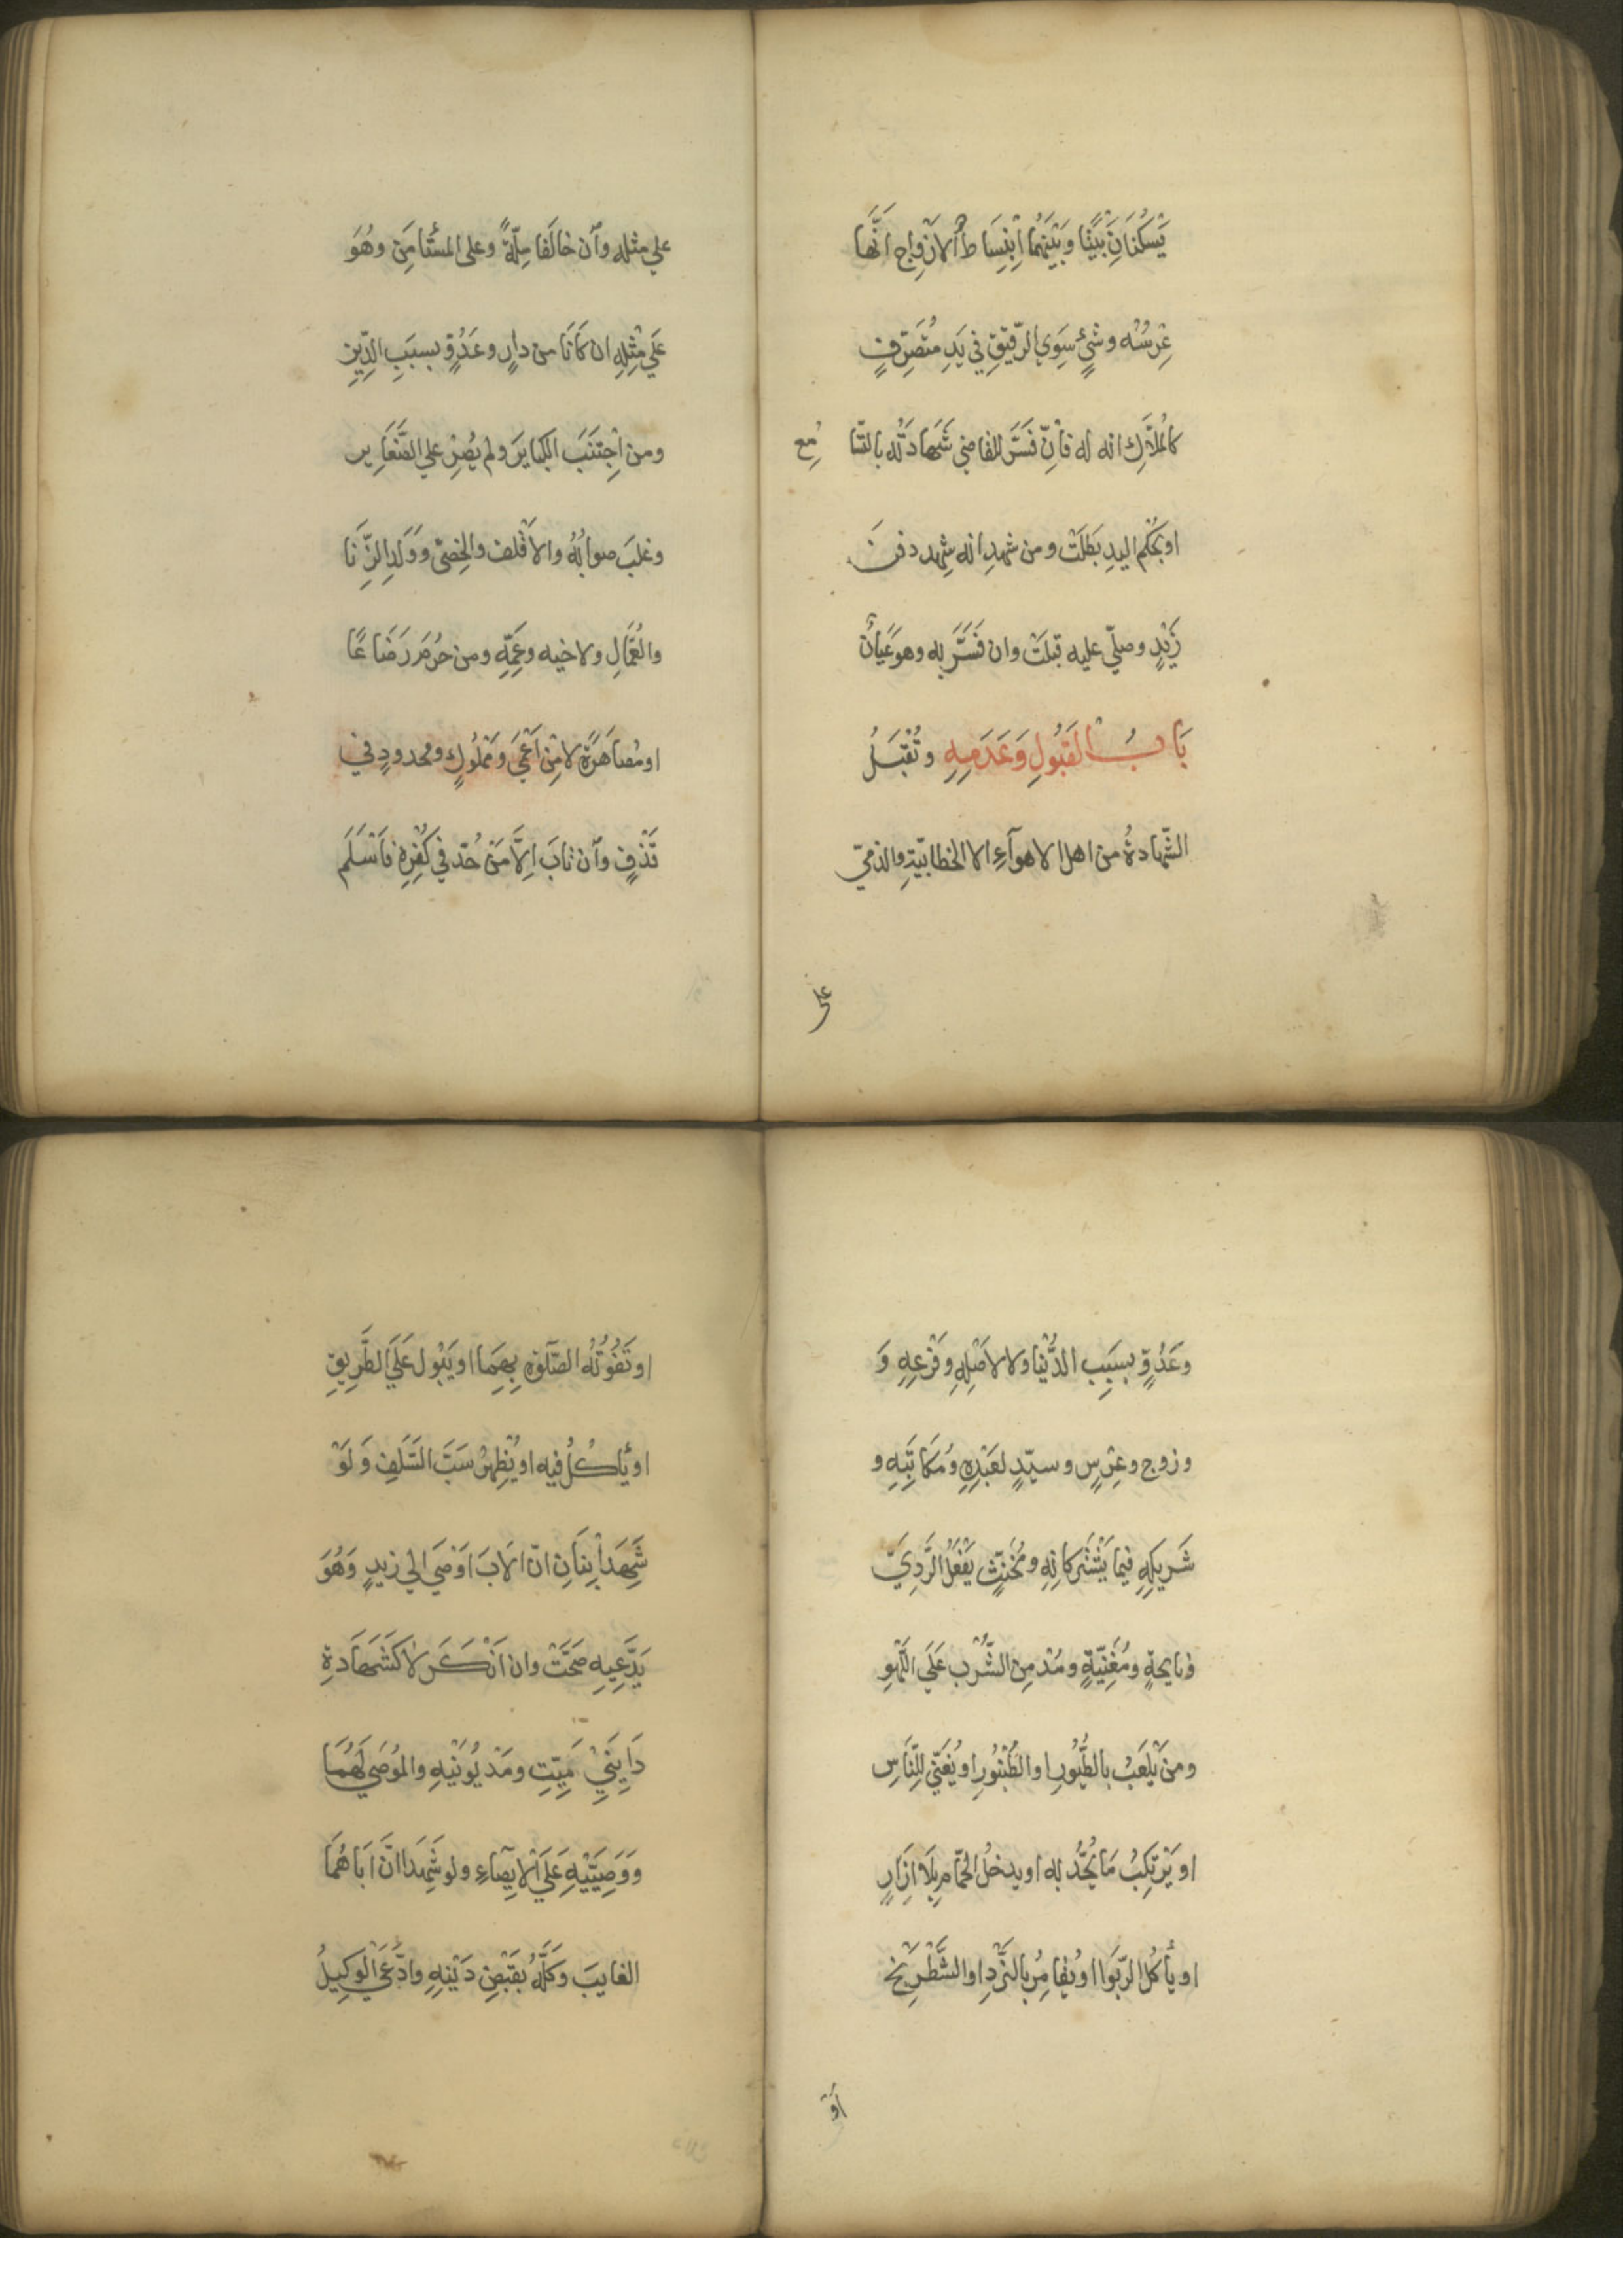 يَسْكُنَانِ بَيْتًا وبَيْنَهُمَا اِنْبِسَاطُ الازْوَاج اَنَّها
عِرْسُه وشئٍ سِوَى الرّقيقِ في يَدِ مُتَصَرِّفٍ
كالمُلاَّكِ انه له فاِنْ فَسَّرَ للقاضي شَهَادَتَه بالتَّسَا مُعِ
او بحُكمِ اليدِ بَطَلَتْ ومن شهدِ انه شهد دفن
زَيْدٍ وصلّى عليه قبلَتْ وان فَسَّرَ به وهو عَيَانٌ
بَابُ القَبُولِ وَعَدَمِهِ وتُقْبَلُ
الشّهادةُ من اهل الاهوآءِ الا الخطابيّةِ والذميّ
على
علي مثله وان خالَفا مِلّةً وعلى المستَأمَنِ وهُوَ
عَلَي مِثْلِهِ ان كَانَا من دارٍ وعَدُوٍّ بسبَبِ الدّينِ
ومن اِجْتَنَبَ الكبايرَ ولم يُصِرّ علي الصَّغَايِر
وغلبَ صوابُهُ والاَقْلف والخِصىّ ووَلَدِ الزّنَا
والعُمَّالِ ولاخيه وعَمِّهِ ومن حرُمَ رَضَاعًا
او مُصَاهَرَةً لا مِنْ اَعْمَي ومَمْلُوكٍ ومحدودٍ في
قَذْفٍ وان تابَ اِلَّا مَنْ حُدّ في كُفْرِهِ فاَسْلَمَ
وعَدُوٍّ بسبَبِ الدُّنْيا ولا لاصْلِهِ وفَرْعِهِ وَ
وزوجٍ وعِرْسٍ وسيّدٍ لعَبْدِهِ ومُكَاتَبِهِ و
شَرِيكِهِ فيما يَشْتَركانِه ومُخَنَّثٍ يَفْعَلُ الرَّدِيَّ
ونايحةٍ ومُغَنِّيَةٍ ومُدْمِنِ الشُّرْبِ عَلَى اللَّهْوِ
ومن يَلْعَبُ بالطُّيُورِ او الطُّنْبُورِ او يُغَنّي لِلنَّاسِ
او يَرْتَكِبُ مَا يُحَدُّ به او يدخلُ الحمّام بِلَا اِزَارٍ
او يأكُلُ الرّبَوا او يُقامِرُ بالنَّرْدِ او الشَّطْرَنْج
اَوْ
او تَفُوتُه الصَّلَوةِ بِهِمَا او يَبُول عَلَى الطَّرِيقِ
او يَأكُلُ فيه او يُظْهِرُ سَبَّ السَّلَفِ وَلَوْ
شَهِدَ اِبْنَانِ انّ الاَبَ اَوْصَي الي زيدٍ وَهُوَ
يَدَّعِيهِ صَحَّتْ وان اَنْكَرَ لا كَشَهَادةِ
دَايِنَيْ مَيِّتٍ ومَدْيُونَيْهِ والموُصَي لَهُمَا
ووَصِيَّيْهِ عَلَى الاِيصآءِ ولو شَهِدَا انَّ اَبَاهُمَا
الغايبَ وَكَّلَهُ بقَبْضِ دَيْنِهِ وادَّعَى الوَكِيلُ